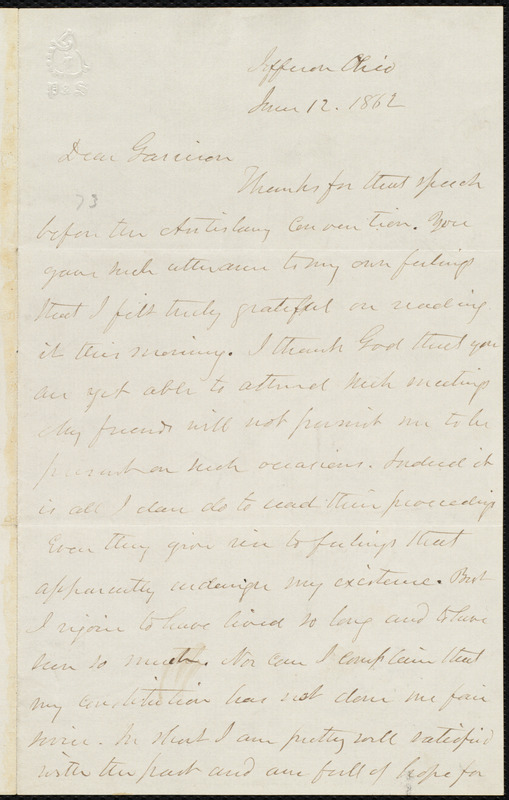 Jefferson Ohio
June 12. 1862
Dear Garrison
73
Thanks for that speech
before the Antislavery Convention. You
gave such utterance to my own feelings
that I felt truly grateful on reading
it this morning. I thank God that you
are yet able to attend such meetings
My friends will not permit me to be
present on such occasions. Indeed it
is all I dare do to read their proceedings
Even they give rise to feelings that
apparently endanger my existence. But
I rejoice to have lived so long and to have
seen so much. Nor can I complain that
my constitution has not done me fair
service. In short I am pretty well satisfied
with the past and am full of hope for